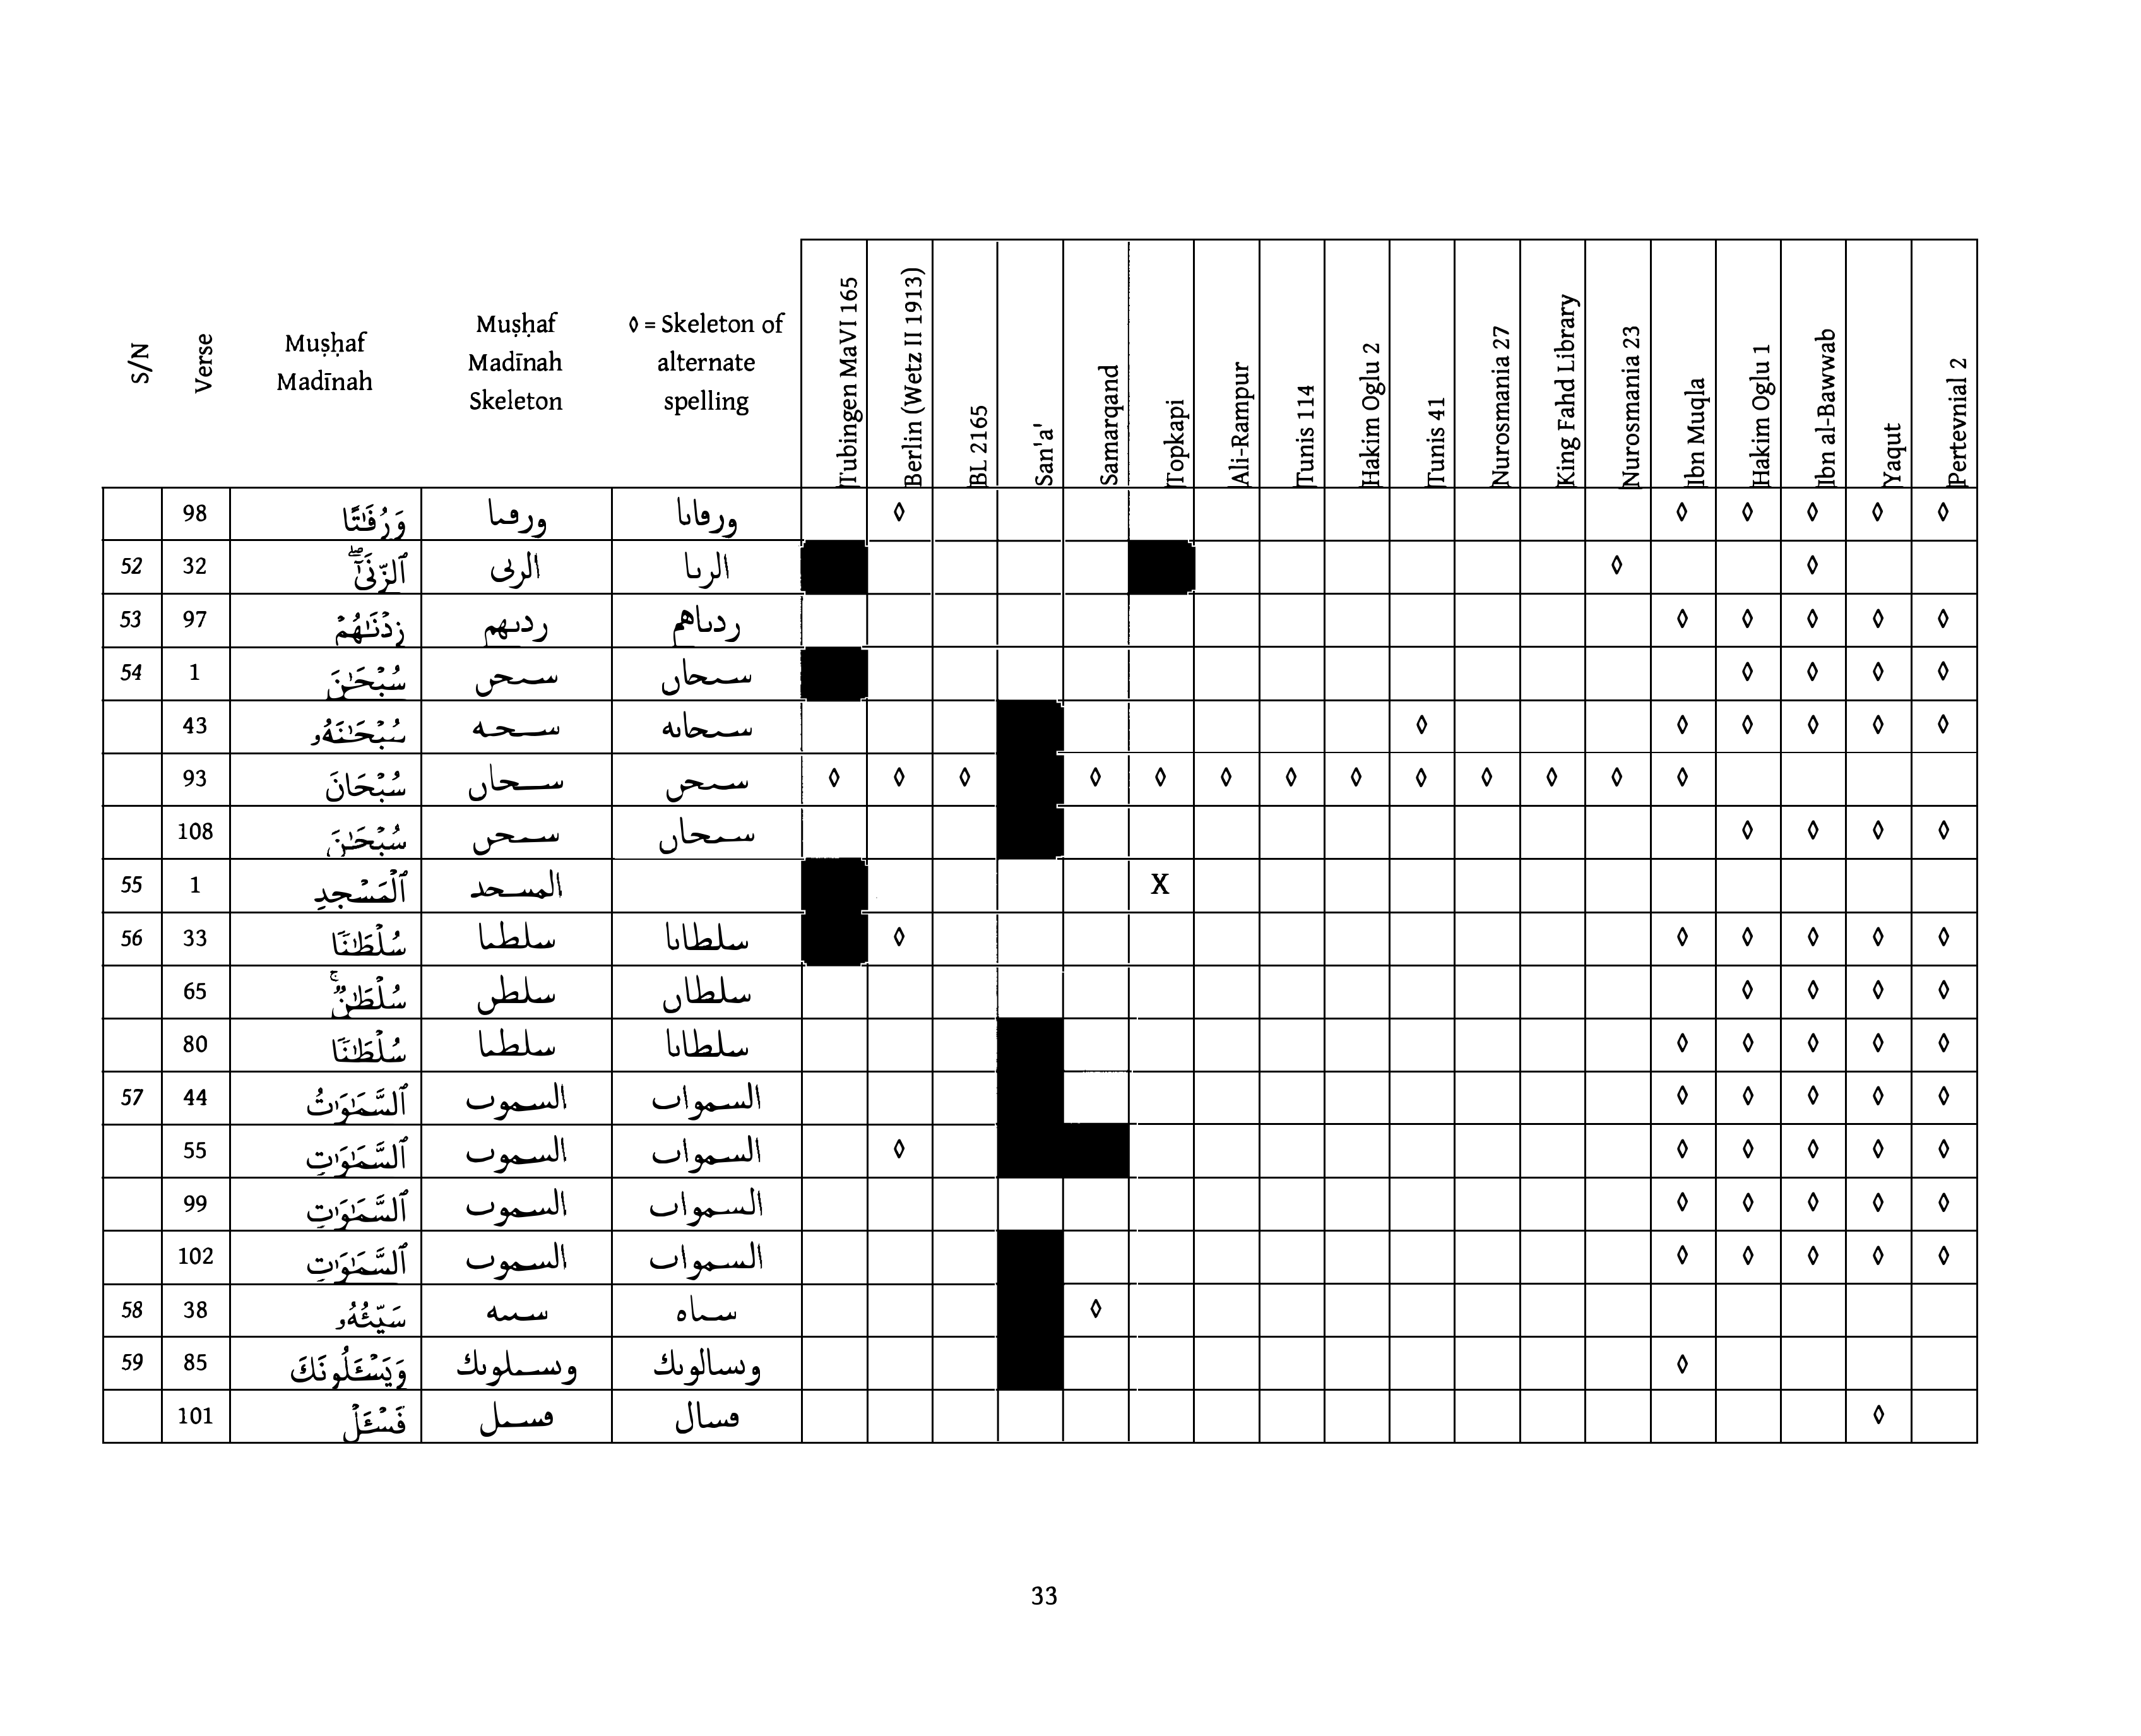 S/N Verse Muṣḥaf Madīnah Muṣḥaf Madīnah Skeleton ◊ = Skeleton of alternate spelling Tubingen MaVI 165 Berlin (Wetz II 1913) BL 2165 San'a' Samarqand Topkapi Ali-Rampur Tunis 114 Hakim Oglu 2 Tunis 41 Nurosmania 27 King Fahd Library Nurosmania 23 Ibn Muqla Hakim Oglu 1 Ibn al-Bawwab Yaqut Pertevnial 2
98 وَرُفَـٰتًا ورڡٮا ورڡاٮا ◊ ◊ ◊ ◊ ◊ ◊
52 32 ٱلزِّنَىٰٓۖ الرٮى الرٮا ◊ ◊
53 97 زِدْنَـٰهُمْ ردٮهم ردٮاهم ◊ ◊ ◊ ◊ ◊
54 1 سُبْحَـٰنَ سٮحں سٮحاں ◊ ◊ ◊ ◊
43 سُبْحَـٰنَهُۥ سٮحٮه سٮحاٮه ◊ ◊ ◊ ◊ ◊ ◊
93 سُبْحَانَ سٮحاں سٮحں ◊ ◊ ◊ ◊ ◊ ◊ ◊ ◊ ◊ ◊ ◊ ◊ ◊
108 سُبْحَـٰنَ سٮحں سٮحاں ◊ ◊ ◊ ◊
55 1 ٱلْمَسْجِدِ المسحد X
56 33 سُلْطَـٰنًا سلطٮا سلطاٮا ◊ ◊ ◊ ◊ ◊ ◊
65 سُلْطَـٰنٌۚ سلطں سلطاں ◊ ◊ ◊ ◊
80 سُلْطَـٰنًا سلطٮا سلطاٮا ◊ ◊ ◊ ◊ ◊
57 44 ٱلسَّمَـٰوَٰتُ السموٮ السمواٮ ◊ ◊ ◊ ◊ ◊
55 ٱلسَّمَـٰوَٰتِ السموٮ السمواٮ ◊ ◊ ◊ ◊ ◊ ◊
99 ٱلسَّمَـٰوَٰتِ السموٮ السمواٮ ◊ ◊ ◊ ◊ ◊
102 ٱلسَّمَـٰوَٰتِ السموٮ السمواٮ ◊ ◊ ◊ ◊ ◊
58 38 سَيِّئُهُۥ سٮٮه سٮاه ◊
59 85 وَيَسْـَٔلُونَكَ وٮسٮلوٮك وٮسالوٮك ◊
101 فَسْـَٔلْ ڡسٮل ڡسال ◊
33